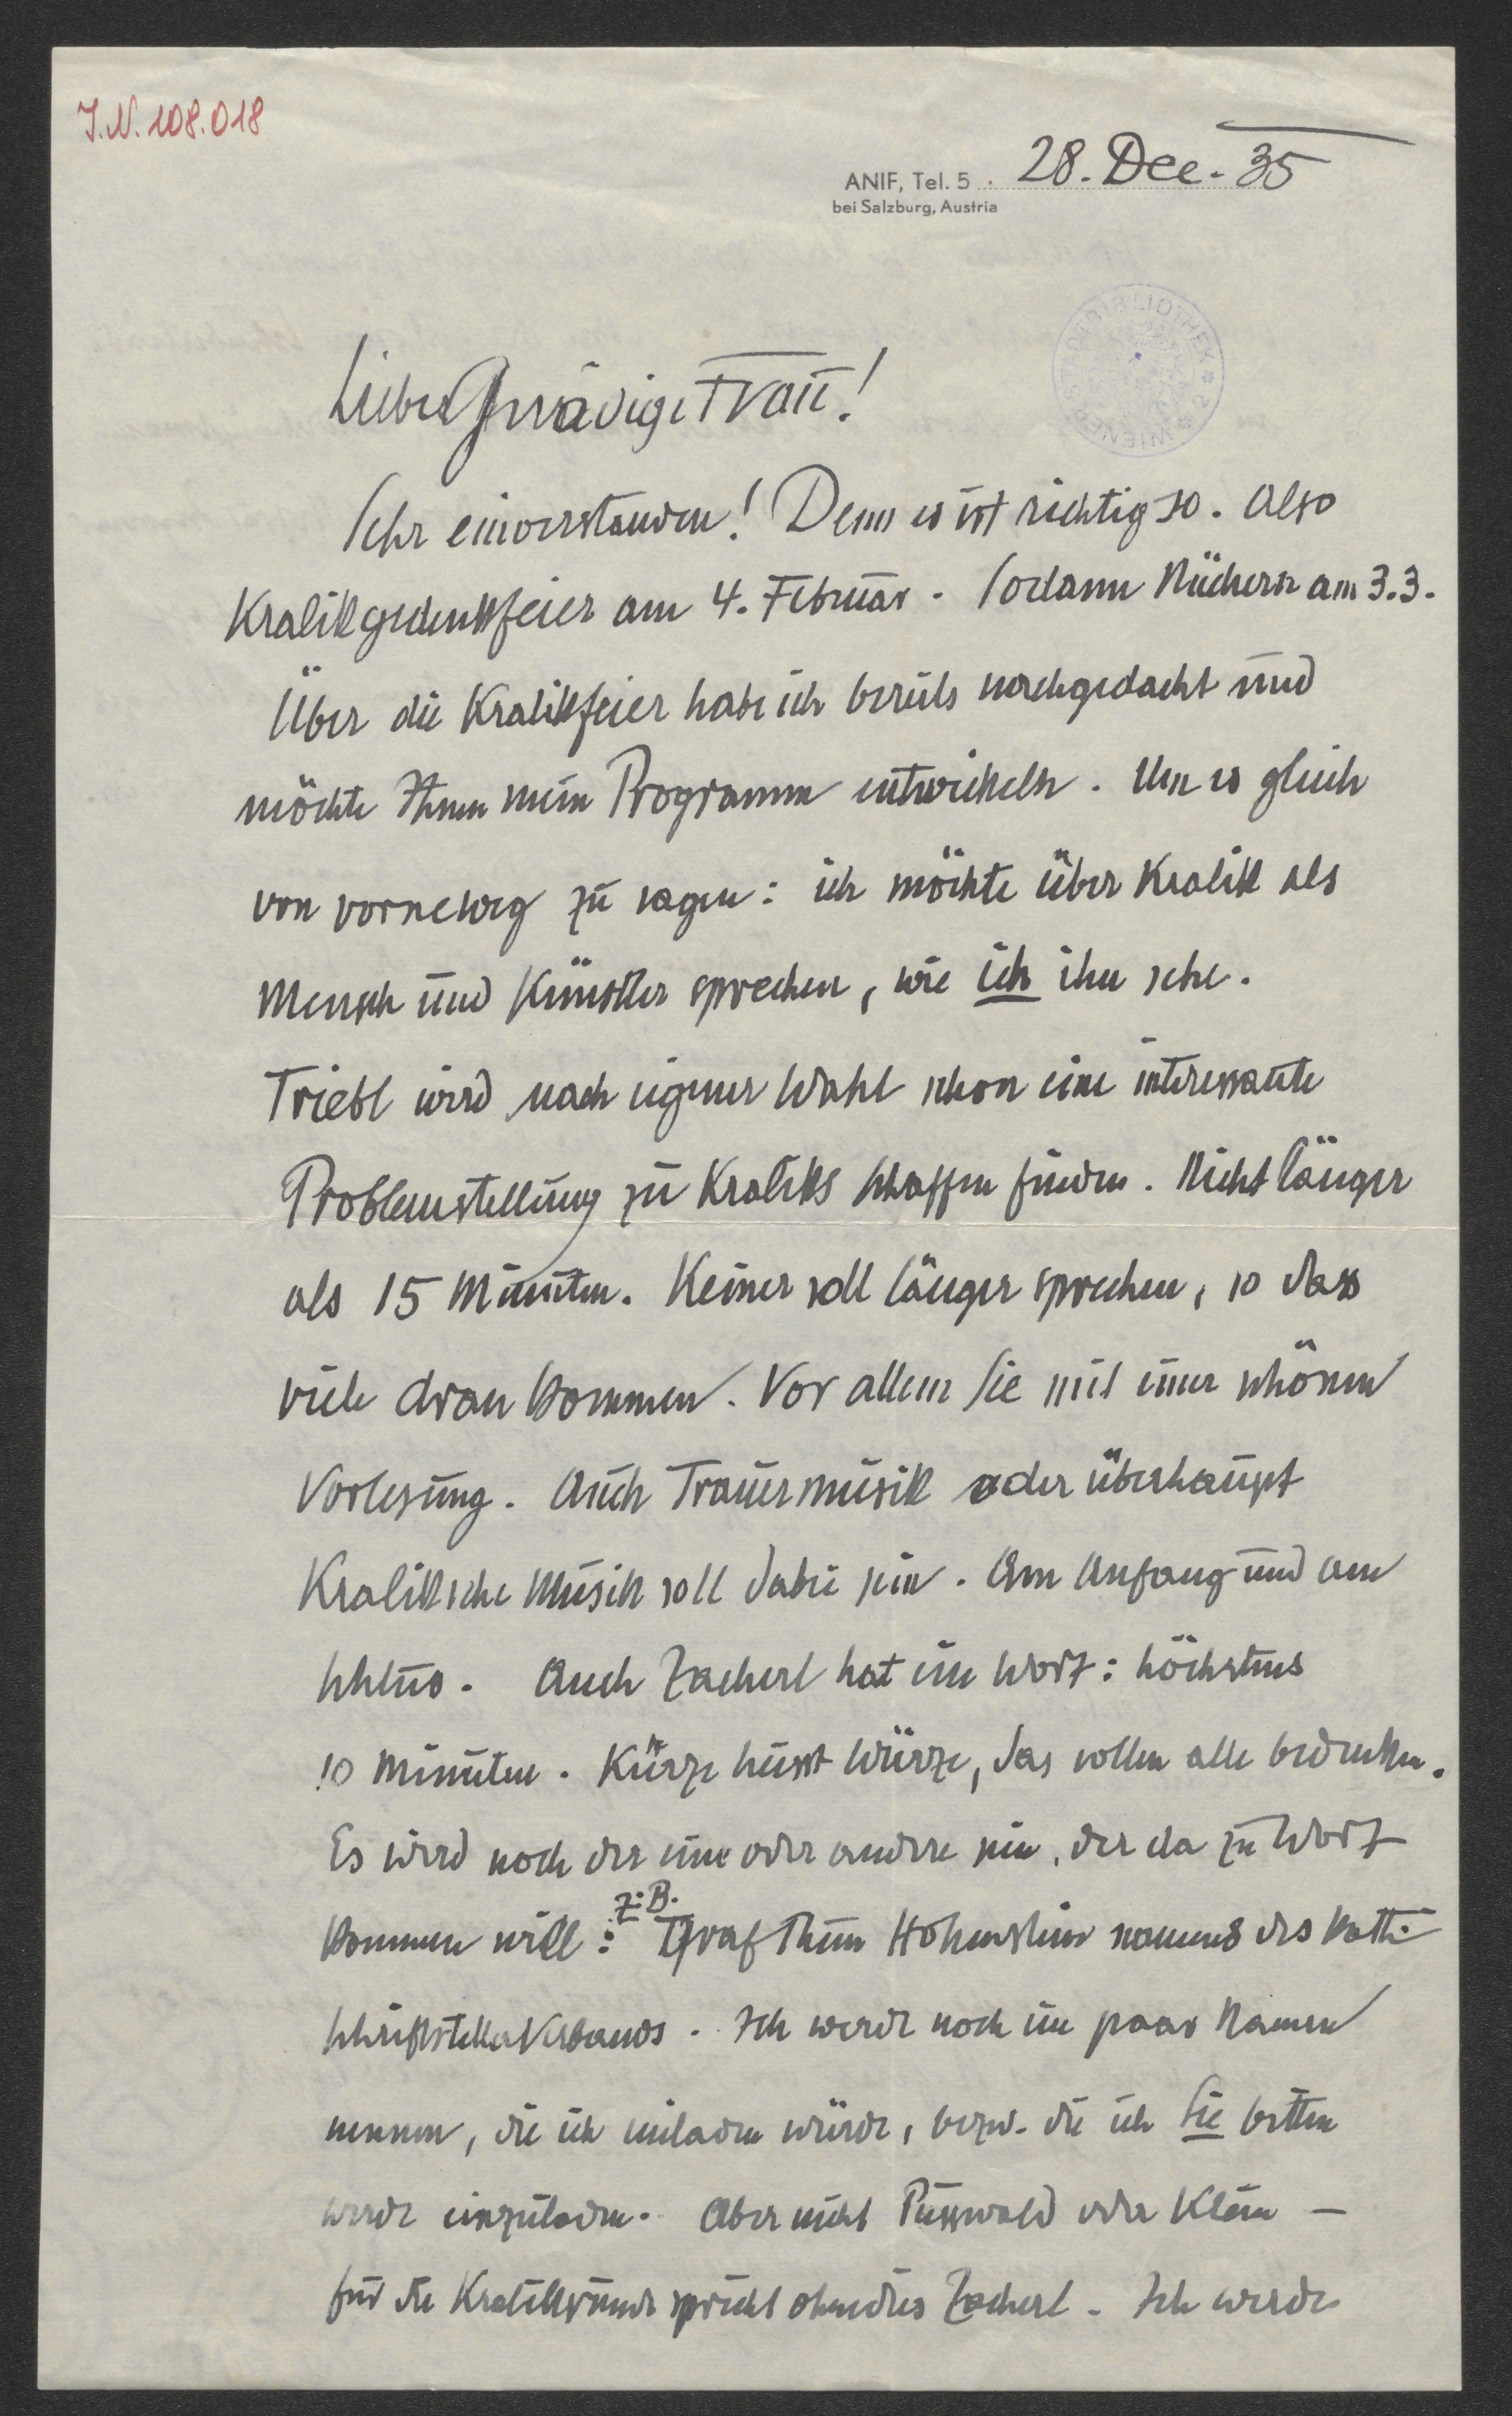 J.N. 108.018
28. Dec. 35
ANIF, Tel. 5
bei Salzburg, Austria
WIENER STADTBIBLIOTHEK
Liebe Gnädige Frau!
Sehr einverstanden! Denn es ist richtig so. Also
Kralikgedenkfeier am 4. Februar. Sodann Rüchern am 3.3.
Über die Kralikfeier habe ich bereits nachgedacht und
möchte Ihnen mein Programm entwickeln. Um es gleich
von vorneweg zu sagen: ich möchte über Kralik als
Mensch und Künstler sprechen, wie ich ihn sehe.
Triebl wird nach eigener Wahl schon eine interessante
Problemstellung zu Kraliks Schaffen finden. Nicht länger
als 15 Minuten. Keiner soll länger sprechen, so dass
viele dran kommen. Vor allem Sie mit einer schönen
Vorlesung. Auch Trauermusik oder überhaupt
Kraliksche Musik soll dabei sein. Am Anfang und am
Schluss. Auch Zacherl hat ein Wort: höchstens
10 Minuten. Kürze heisst Würze, das sollen alle bedenken.
Es wird noch der eine oder andere sein, der da zu Wort
kommen will: z.B. Graf Thun Hohenstein namens des kath.
Schriftstellerverbands. Ich werde noch ein paar Namen
nennen, die ich einladen würde, bezw. die ich Sie bitten
werde einzuladen. Aber nicht Pusswald oder Klein –
für die Kralikrunde spricht ohnedies Zacherl. Ich werde